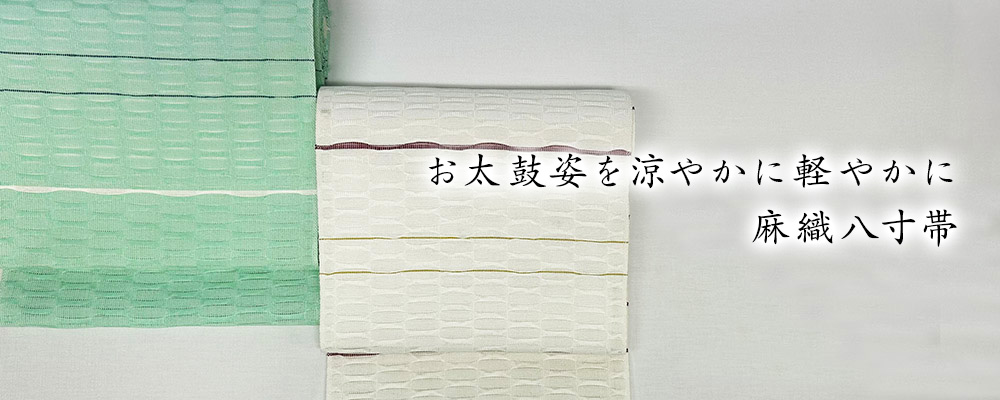 お太鼓姿を涼やかに軽やかに
麻織八寸帯